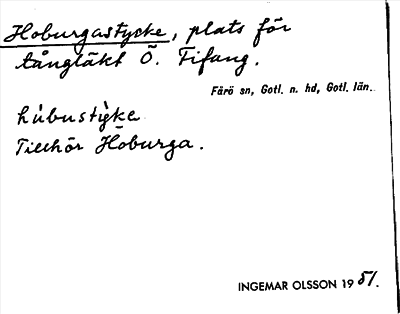 Hoburgastycke, plats för
tångtäkt Ö. Tifang.
Fårö sn, Gotl. n. hd, Gotl. län.
hùbustỳke
Tillhör Hoburga.
INGEMAR OLSSON 19 51.